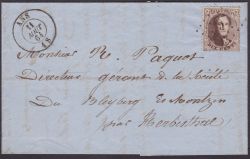 ANS
11
18
Monsieur R. Paquot
Directeur gérant de la Société
Du Bleyberg à Montzen
par Herbesthal